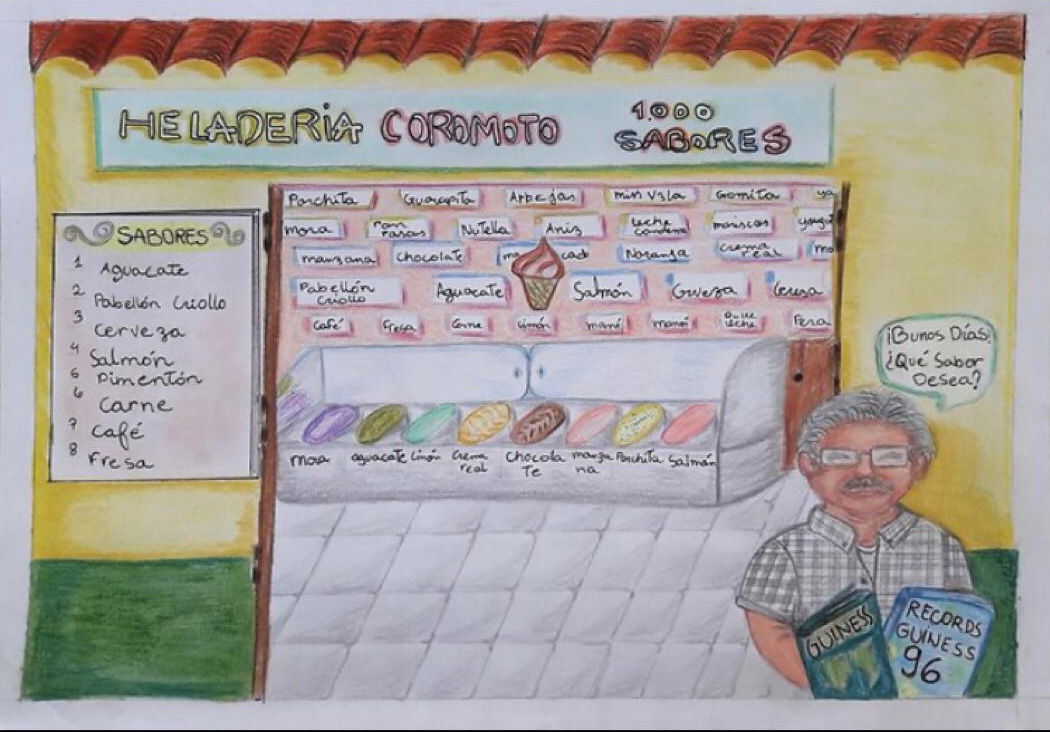 HELADERIA COROMOTO
1.000
SABORES
SABORES
1 Aguacate
2 Pabellón Criollo
3 Cerveza
4 Salmón
5 Pimentón
6 Carne
7 Café
8 Fresa
Parchita Guarapita Arbejas miss Vzla Gomita
mora Nutella Aniz leche mariscos
manzana Chocolate cado Naranja crema
real
Pabellón
Criollo
Aguacate Salmón Cerveza Cereza
Café Fresa Carne Limón maní mamón Dulce
leche
Pera
mora aguacate Limón Crema
real
Chocola
te
manza
na
Parchita Salmón
¡Bunos Días!
¿Qué Sabor
Desea?
GUINESS
RECORDS
GUINESS
96